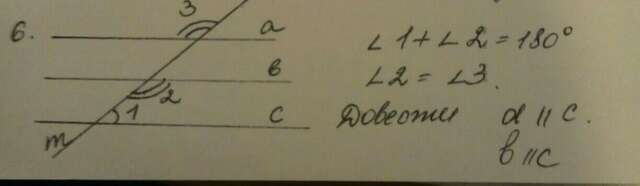 6.
3
a
b
2
1
c
m
∠1+∠2=180°
∠2=∠3.
Довести a || c.
b || c